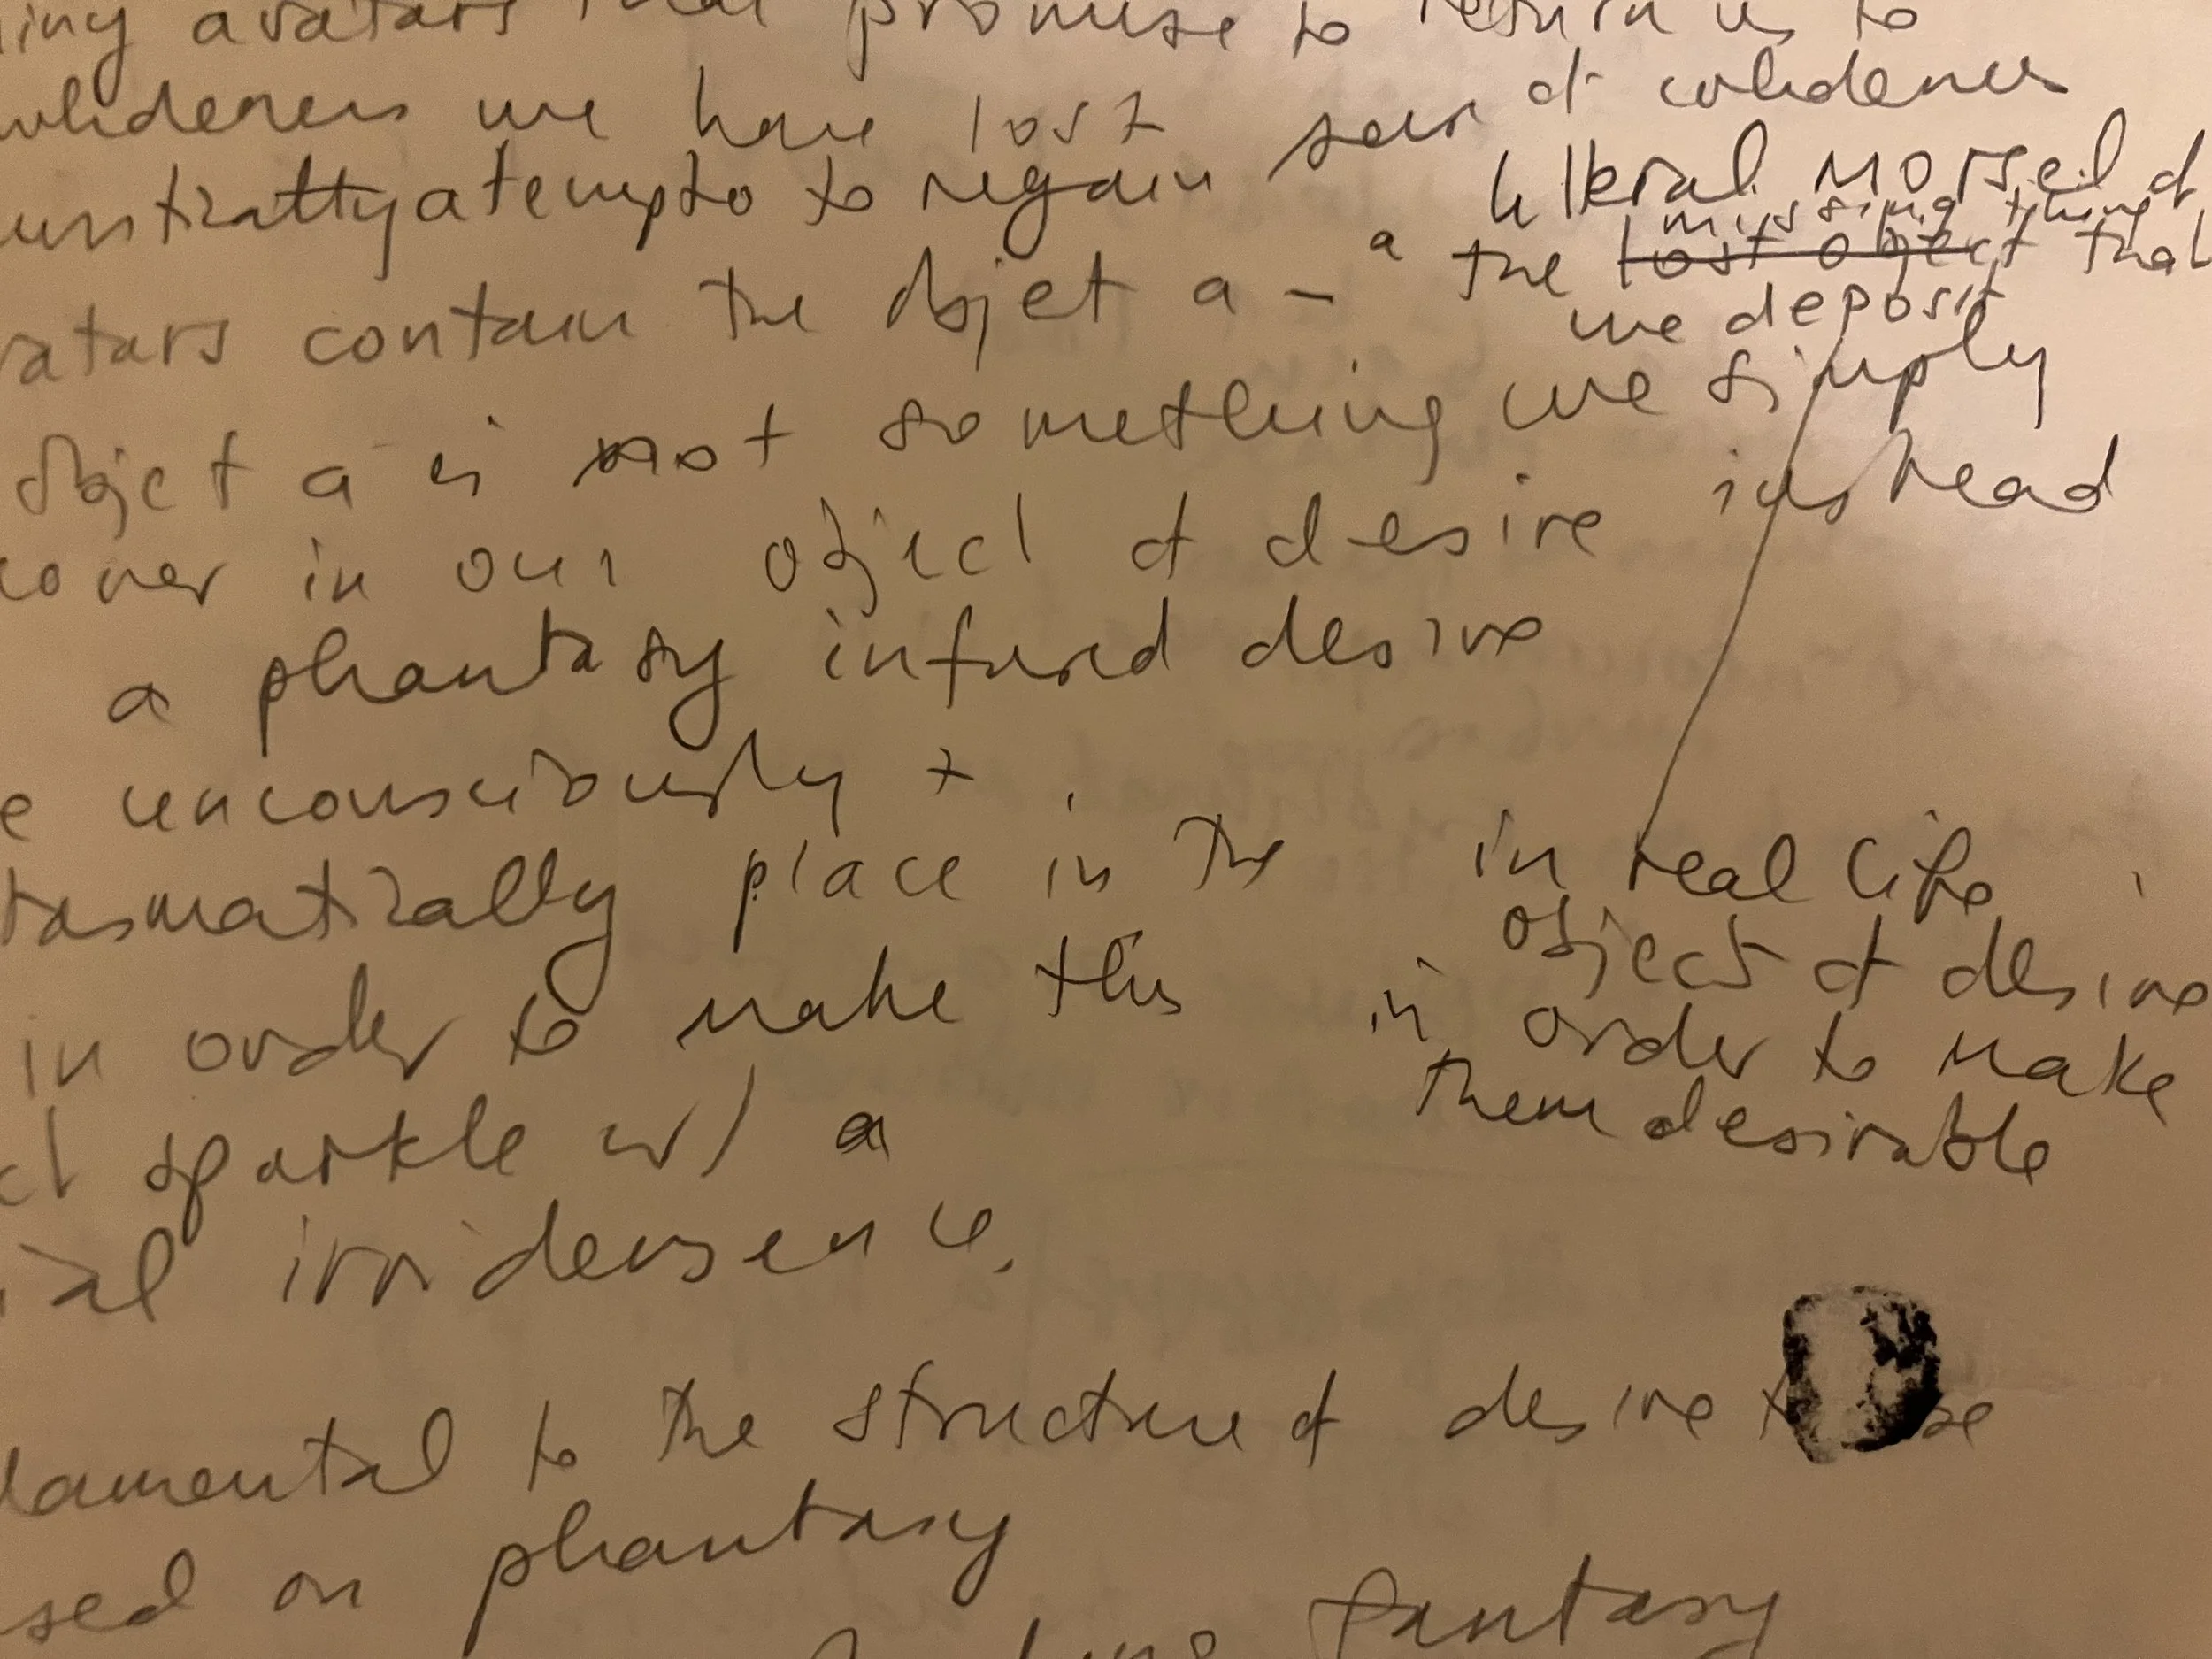 iny avatars that promise to return us to
wholeness we have lost
sense of wholeness
attempts to regain
literal morsel of
missing thing
a the lost object that
atars contain the objet a –
we deposit
objet a is not something we simply
cover in our object of desire instead
a phantasy infused desire
e unconsciously +
tasmatically place in the
in real life
object of desire
in order to make this
in order to make
them desirable
ct sparkle w/ a
ial irridensence.
damental to the structure of desire
sed on phantasy
fantasy